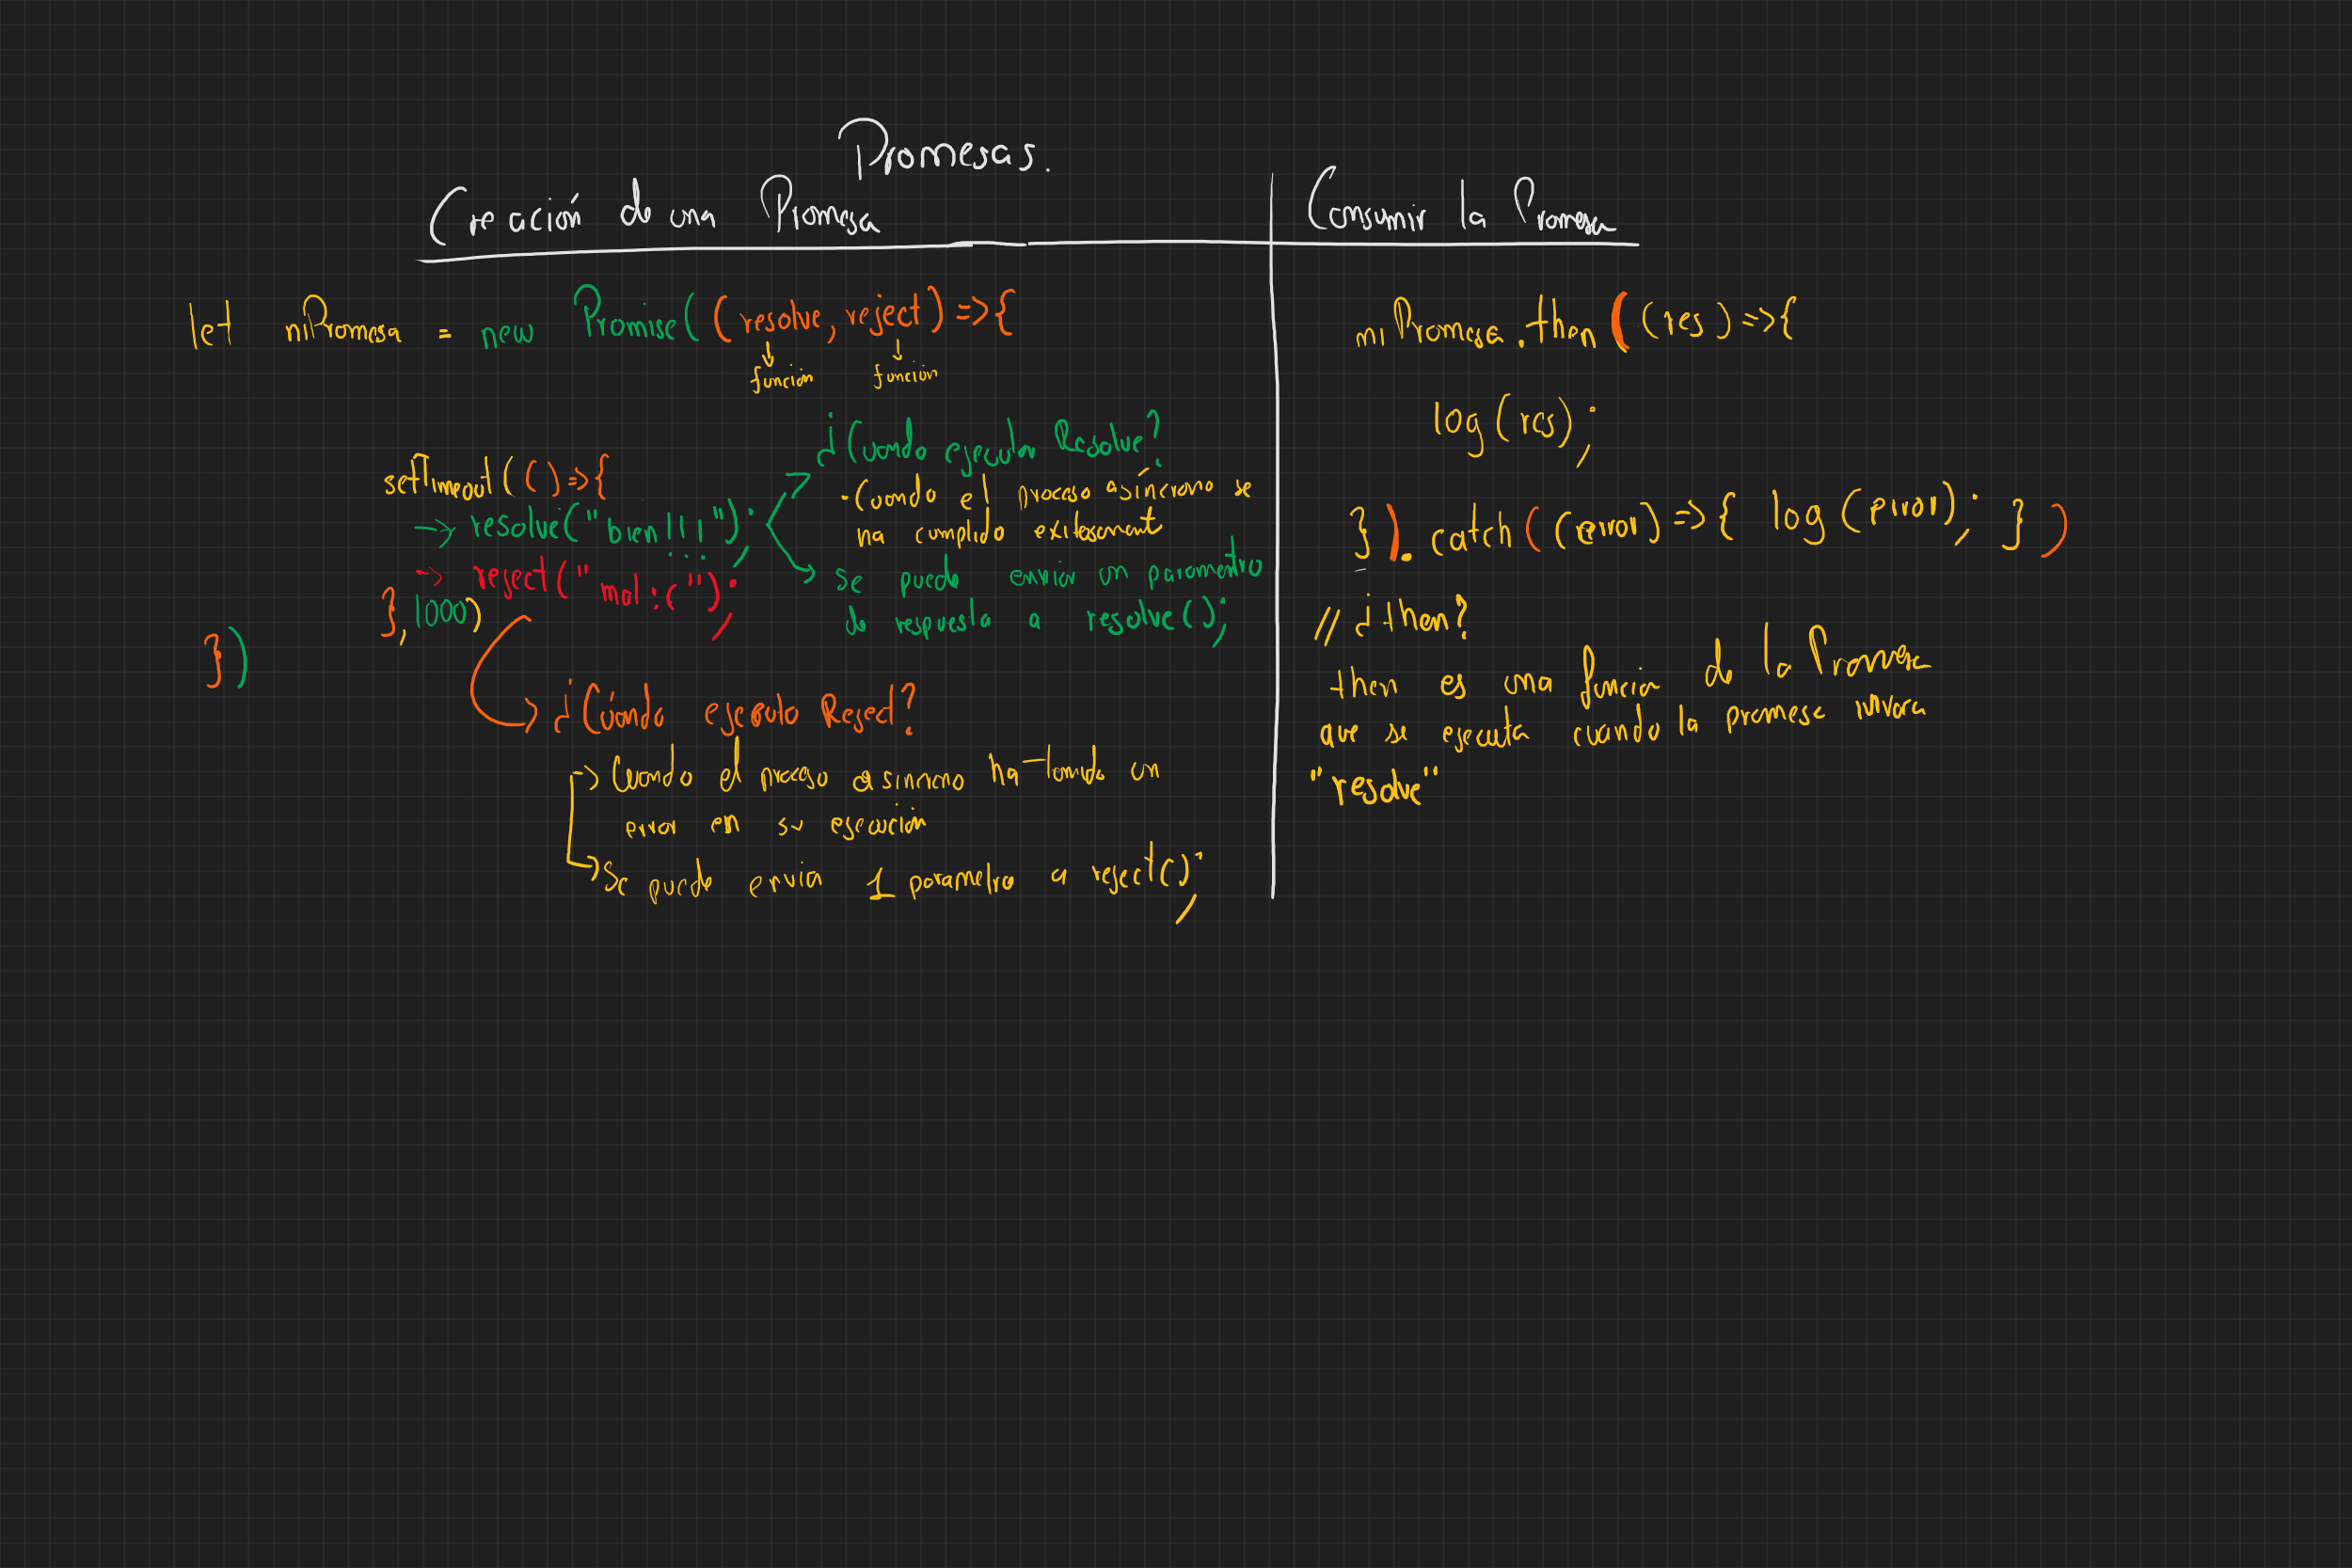 Promesas.
Creación de una Promesa
let miPromesa = new Promise((resolve, reject) =>{
función función
setTimeout(() =>{
-> resolve("bien!!!");
-> reject("mal:(");
}, 1000)
})
¿Cuando ejecutar Resolve?
- Cuando el proceso asíncrono se
ha cumplido exitosament
se puede enviar un paramentro
de respuesta a resolve();
¿Cúando ejecuto Reject?
-> Cuando el proceso asincrono ha tenido un
error en su ejecución
-> Se puede envia 1 parametro a reject();
Consumir la Promesa
miPromesa.then((res) =>{
log(res);
}).catch((error) =>{ log(error); })
// ¿then?
then es una función de la Promesa
que se ejecuta cuando la promesa invoca
"resolve"